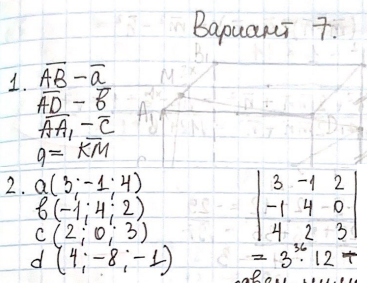 Вариант 7.
1. AB - a
AD - b
AA₁ - c
q = KM
B₁
M
A₁
D₁
2. a(3; -1; 4)
b(-1; 4; 2)
c(2; 0; 3)
d(4; -8; -1)
| 3 -1 2 |
| -1 4 0 |
| 4 2 3 |
36
= 3 · 12 +